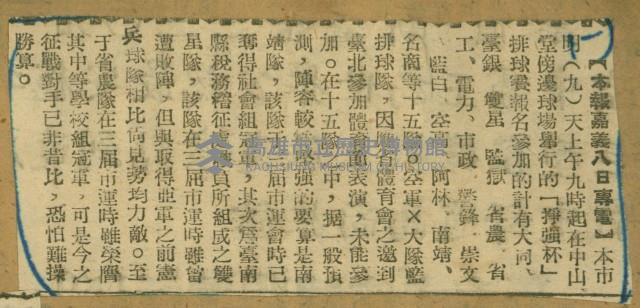 【本報嘉義八日專電】本市
明(九)天上午九時起在中山
堂傍邊球場舉行的「掙強杯」
排球賽報名參加的計有大同、
臺銀 雙星 監獄 省農 省
工、電力、市政 警鋒、崇文
藍白、空 阿林、南靖、
名商等十五隊。空軍×大隊藍
排球隊，因 省體育會之邀到
臺北參加體育節表演，未能參
加。在十五隊當中，据一般預
測，陣容較 最強的要算是南
靖隊，該隊在三屆市運會時已
奪得社會組冠軍，其次為臺南
縣稅務稽征處職員所組成之雙
星隊，該隊在三屆市運時雖曾
遭敗陣，但與取得亞軍之前憲
兵球隊相比尚見勢均力敵。至
于省農隊在三屆市運時雖榮膺
其中等學校組冠軍，可是今之
征戰對手已非昔比，恐怕難操
勝算。
高雄市立歷史博物館
KAOHSIUNG MUSEUM OF HISTORY